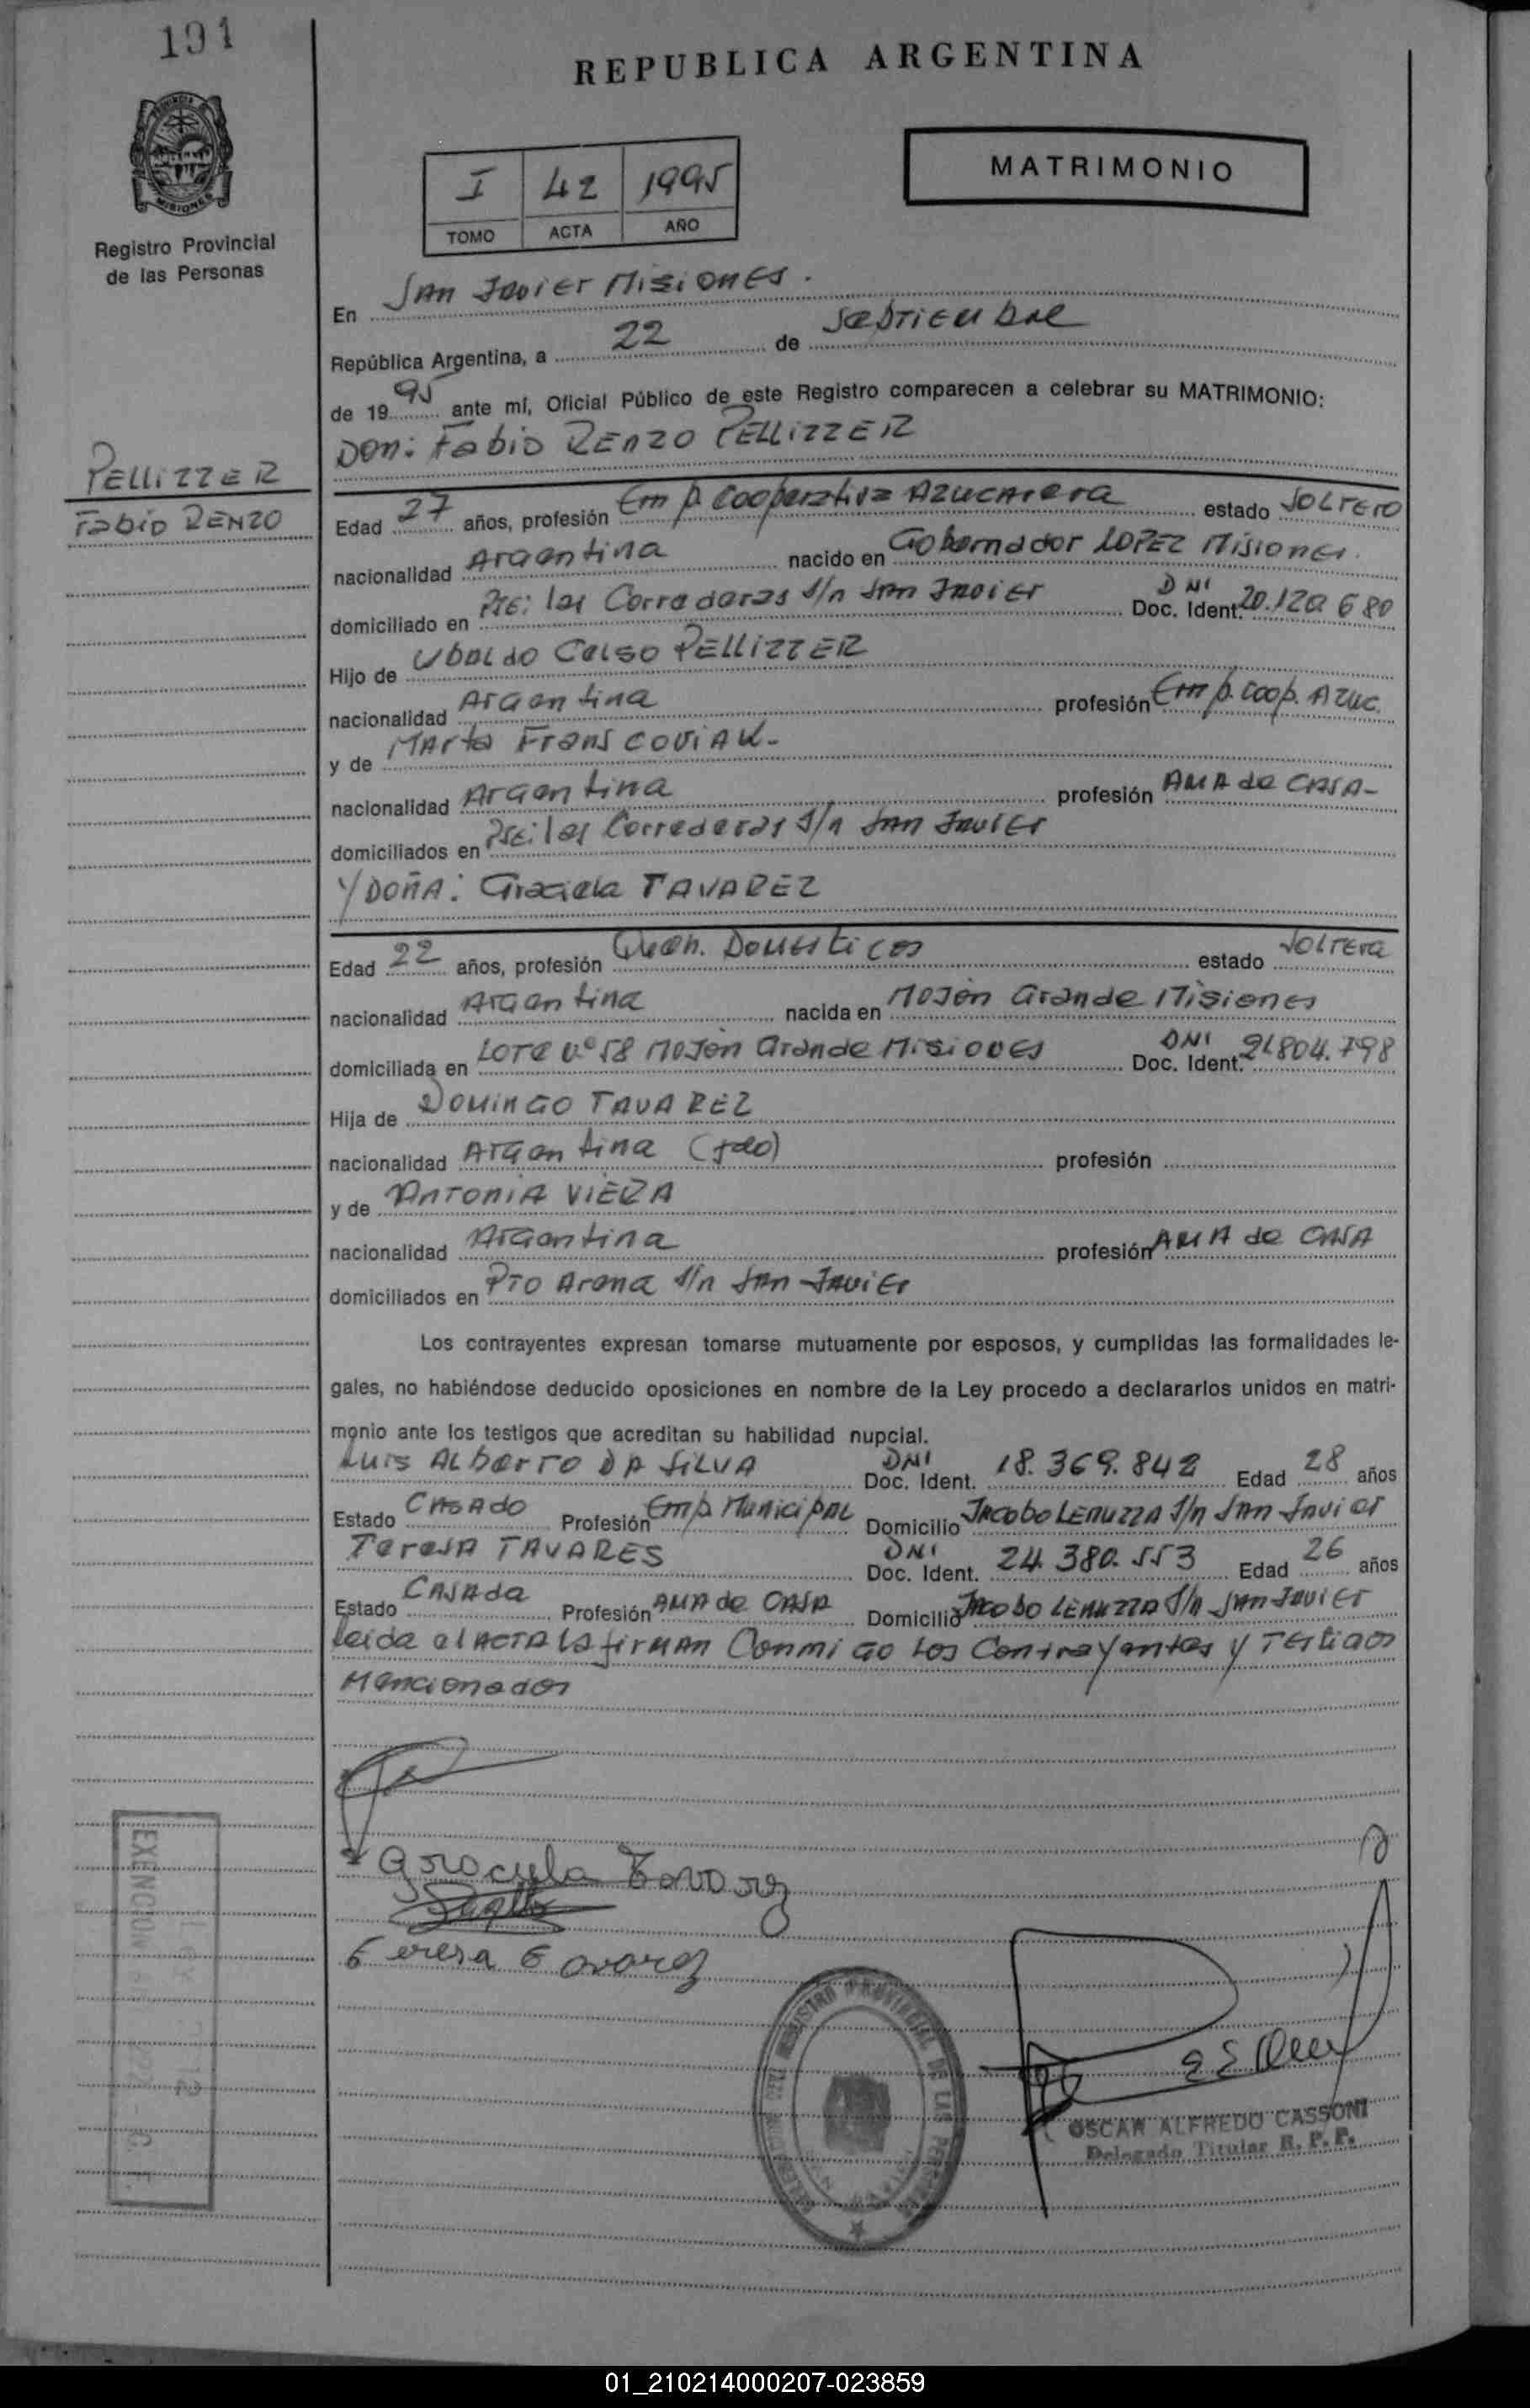 191
REPUBLICA ARGENTINA
MISIONES
Registro Provincial
de las Personas
I 42 1995
TOMO ACTA AÑO
MATRIMONIO
En San Javier Misiones.
República Argentina, a 22 de Septiembre
de 1995 ante mí, Oficial Público de este Registro comparecen a celebrar su MATRIMONIO:
Don: Fabio Renzo PELLIZZER
PELLIZZER
Fabio Renzo
Edad 27 años, profesión Emp. Cooperativa Azucarera estado Soltero
nacionalidad Argentina nacido en Gobernador LOPEZ Misiones.
domiciliado en las Correderas s/n San Javier DNI Doc. Ident. 20.120 680
Hijo de Ubaldo Celso PELLIZZER
nacionalidad Argentina profesión Emp. Coop. Azuc.
y de Marta Franscoviak-
nacionalidad Argentina profesión Ama de Casa-
domiciliados en las Correderas s/n San Javier
Y DOÑA: Graciela TAVAREZ
Edad 22 años, profesión Queh. Domesticos estado Soltera
nacionalidad Argentina nacida en Mojón Grande Misiones
domiciliada en Lote nº 58 Mojón Grande Misiones DNI Doc. Ident. 804.798
Hija de Domingo TAVAREZ
nacionalidad Argentina (fdo) profesión
y de Antonia VIERA
nacionalidad Argentina profesión Ama de Casa
domiciliados en Pto Arana s/n San Javier
Los contrayentes expresan tomarse mutuamente por esposos, y cumplidas las formalidades le-
gales, no habiéndose deducido oposiciones en nombre de la Ley procedo a declararlos unidos en matri-
monio ante los testigos que acreditan su habilidad nupcial.
Luis Alberto DA SILVA DNI Doc. Ident. 18.369.842 Edad 28 años
Estado Casado Profesión Emp Municipal Domicilio Jacobo Lenuzza s/n San Javier
Teresa TAVARES DNI Doc. Ident. 24.380.553 Edad 26 años
Estado Casada Profesión Ama de Casa Domicilio Jacobo Lenuzza s/n San Javier
leida el Acta la firman Conmigo los Contrayentes y Testigos
Mencionados
Graciela Tavarez
Teresa Tavarez
EXENCION
REGISTRO PROVINCIAL DE LAS PERSONAS
OSCAR ALFREDO CASSONI
Delegado Titular R. P. P.
01_210214000207-023859